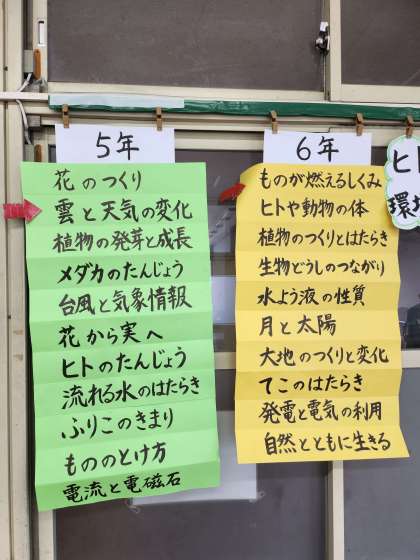 5年
花のつくり
雲と天気の変化
植物の発芽と成長
メダカのたんじょう
台風と気象情報
花から実へ
ヒトのたんじょう
流れる水のはたらき
ふりこのきまり
もののとけ方
電流と電磁石
6年
ものが燃えるしくみ
ヒトや動物の体
植物のつくりとはたらき
生物どうしのつながり
水よう液の性質
月と太陽
大地のつくりと変化
てこのはたらき
発電と電気の利用
自然とともに生きる
ヒト
環境